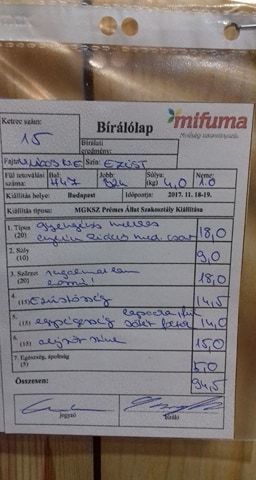 Ketrec szám:
15
Bírálólap
mifuma
Minőség tenyésztőknek
Bírálati
eredmény:
Fajta:
Szín: EZÜST
Fül tetoválási
száma:
Bal: H47
Jobb:
Súlya:
(kg) 4,0
Neme:
1.0
Kiállítás helye: Budapest
Időpontja: 2017. 11. 18-19.
Kiállítás típusa: MGKSZ Prémes Állat Szakosztály Kiállítása
1. Típus
(20)
18,0
2. Súly
(10)
9,0
3. Szőrzet
(20) rugalmatlan
18,0
4.
(15) Ezüstösség
14,5
5.
(15) egységesség
14,0
6.
(15) aljszőr színe
15,0
7. Egészség, ápoltság
(5)
5,0
Összesen:
94,5
jegyző
bíráló